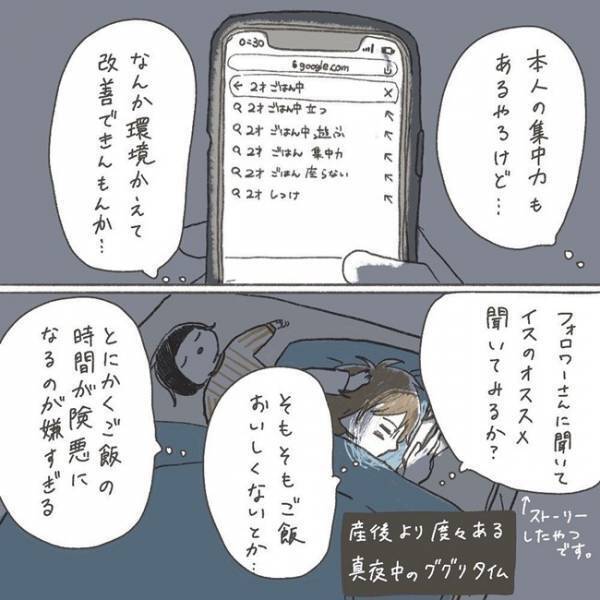 本人の集中力も
あるやろけど…
0:30
google.com
2才 ごはん中
2才 ごはん中 立つ
2才 ごはん中 遊ぶ
2才 ごはん 集中力
2才 ごはん 座らない
2才 しつけ
なんか環境かえて
改善できんもんか…
フォロワーさんに聞いて
イスのオススメ
聞いてみるか?
↑ストーリー
したやつ
です。
そもそもご飯
おいしくないとか…
とにかくご飯の
時間が険悪に
なるのが嫌すぎる
産後より度々ある
真夜中のググりタイム